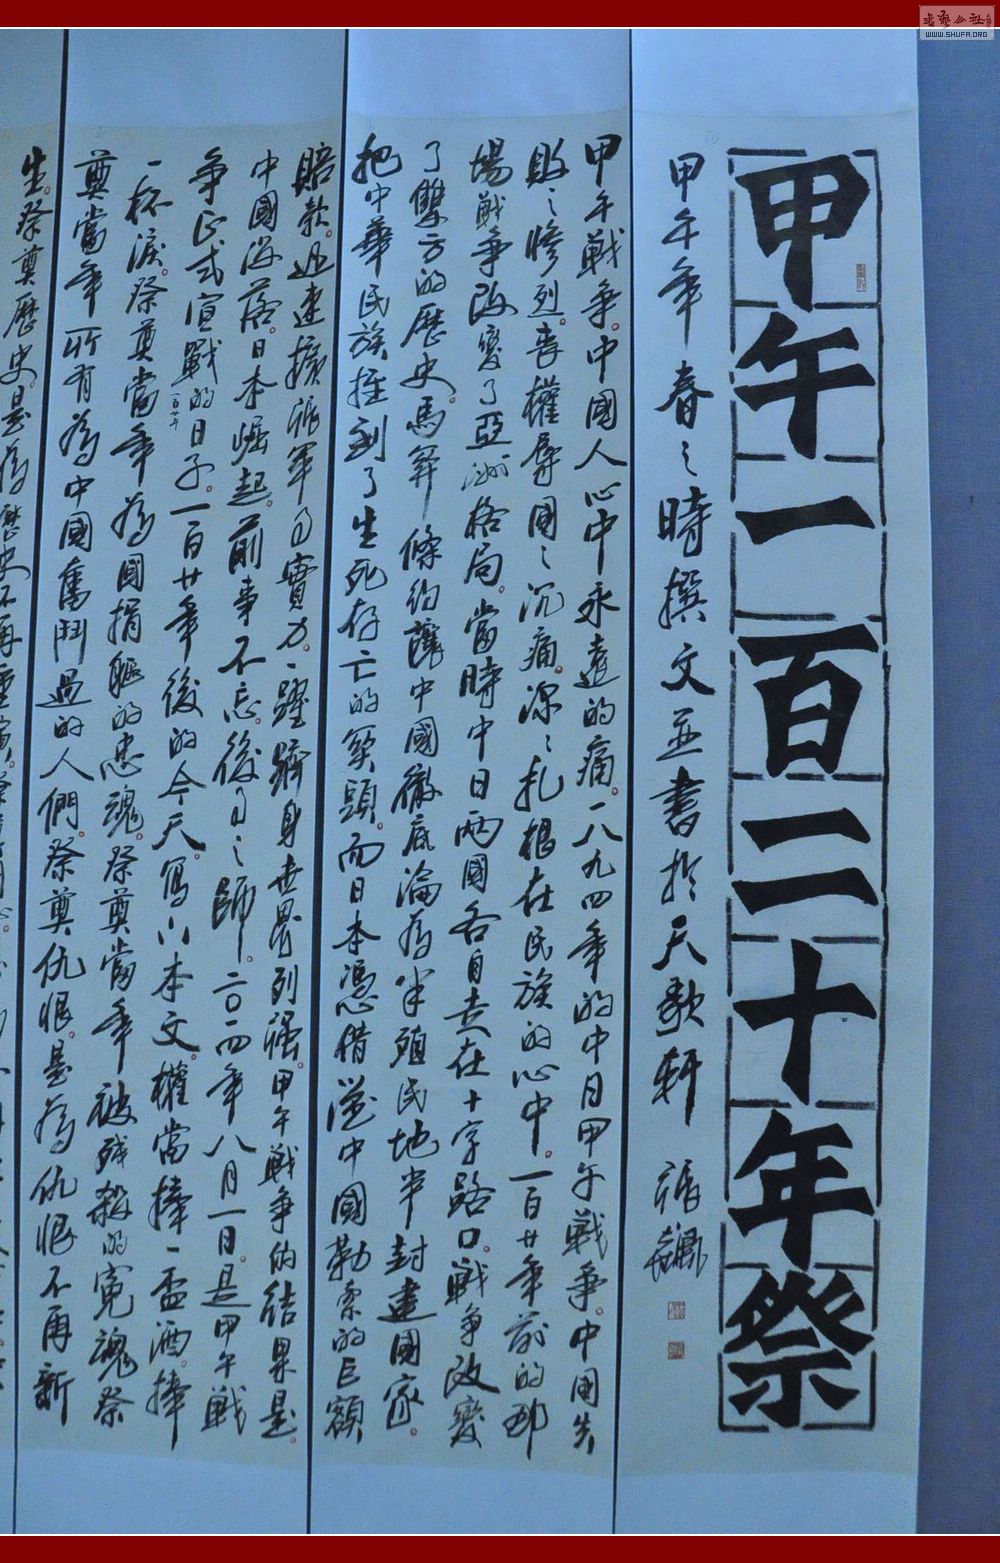 甲午一百二十年祭
甲午年春之時撰文並書於天歌軒
甲午戰争。中國人心中永遠的痛。一八九四年的中日甲午戰争。中國失
敗之慘烈。喪權辱國之沉痛。深深扎根在民族的心中。一百廿年前的那
場戰争改變了亞洲格局。當時中日兩國各自走在十字路口。戰争改變
了雙方的歷史。馬關條約讓中國徹底淪為半殖民地半封建國家。
把中華民族推到了生死存亡的關頭。而日本憑借從中國勒索的巨額
賠款。迅速擴張軍事實力。一躍躋身世界列强。甲午戰争的結果是。
中國没落。日本崛起。前事不忘。後事之師。二〇一四年八月一日。是甲午戰
争正式宣戰的一百廿年日子。一百廿年後的今天。寫小本文。權當捧一盃酒。捧
一杯淚。祭奠當年為國捐軀的忠魂。祭奠當年被残殺的寃魂。祭
奠當年所有為中國奮鬥過的人們。祭奠仇恨。是為仇恨不再新
生。祭奠歷史。是為歷史不再重
書法公社
WWW.SHUFA.ORG